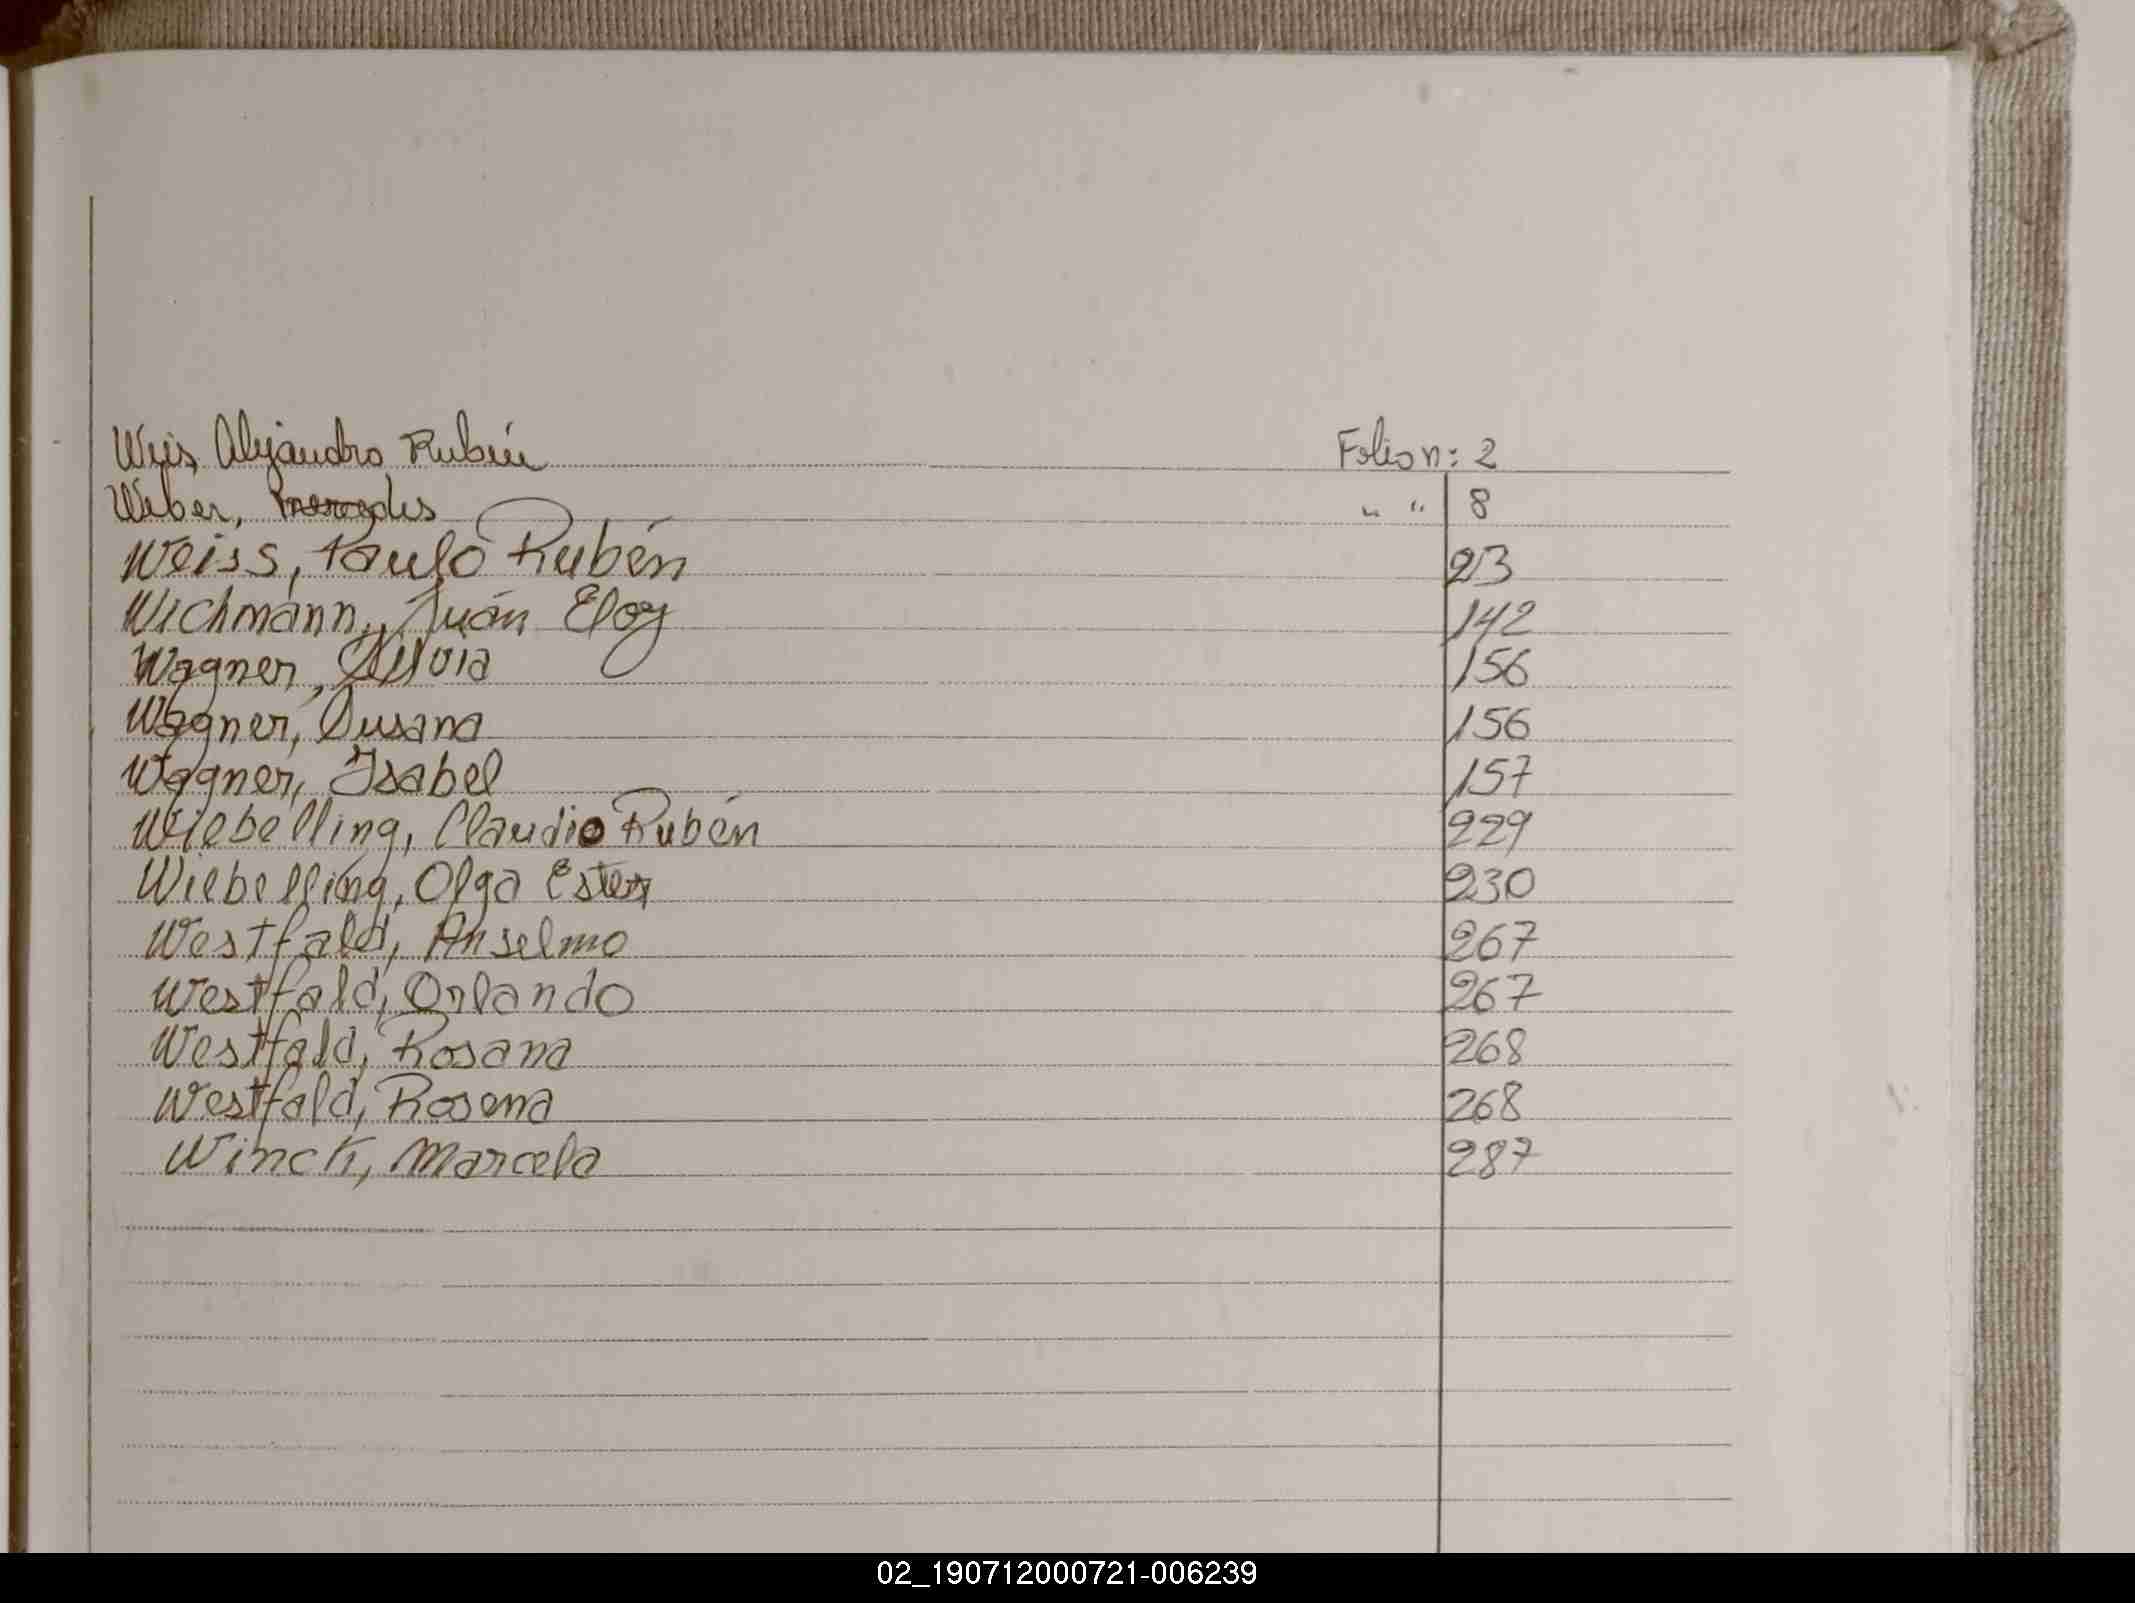 Weis, Alejandro Rubén Folio n: 2
Weber, Mercedes " " 8
Weiss, Paulo Rubén 23
Wichmann, Juán Eloy 142
Wagner, Silvia 156
Wagner, Susana 156
Wagner, Isabel 157
Wiebelling, Claudio Rubén 229
Wiebelling, Olga Ester 230
Westfald, Anselmo 267
Westfald, Orlando 267
Westfald, Rosana 268
Westfald, Rosena 268
Winck, Marcela 287
02_190712000721-006239